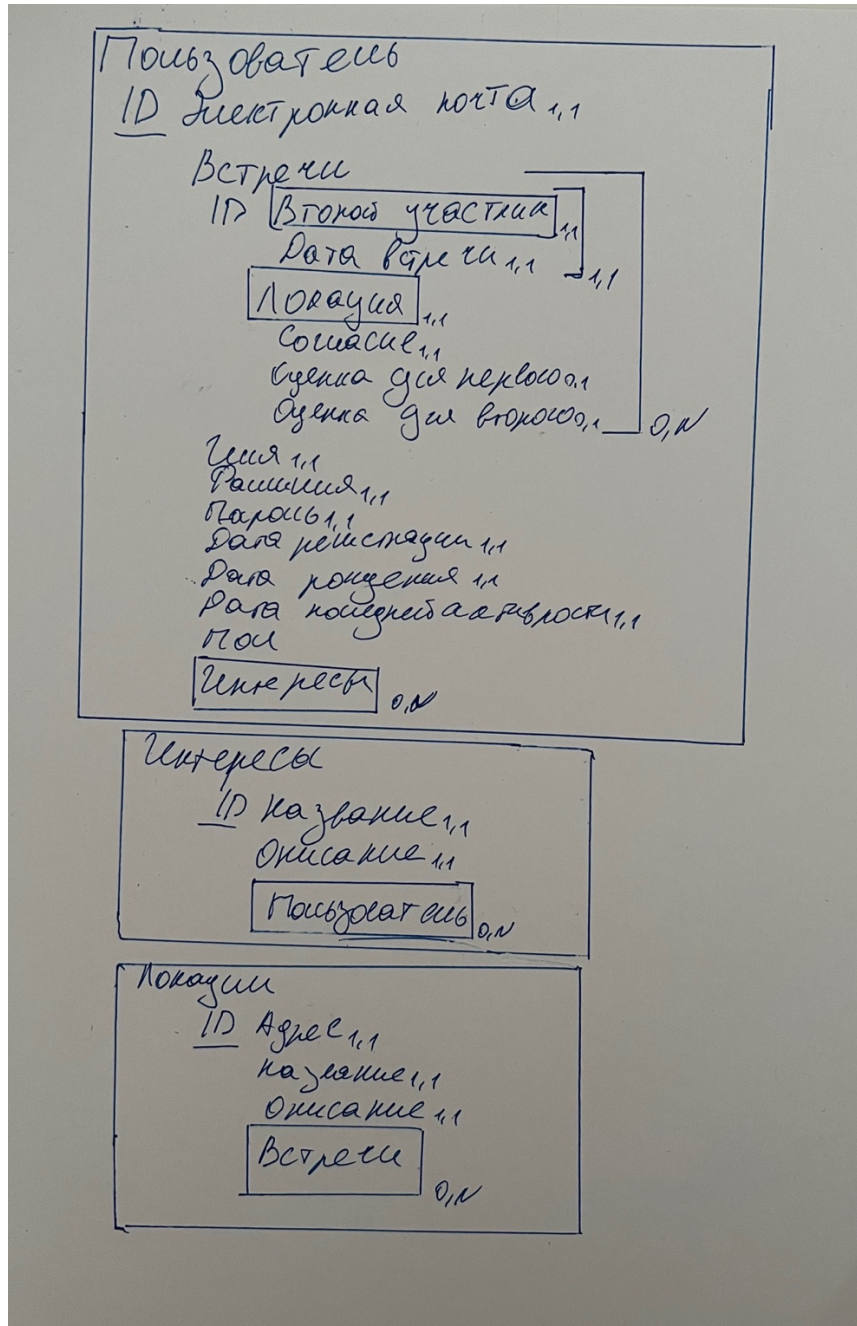 Пользователь
ID Электронная почта 1,1
Встречи
ID Второй участник 1,1
Дата встречи 1,1 1,1
Локация 1,1
Согласие 1,1
Оценка для первого 0,1
Оценка для второго 0,1 0,N
Имя 1,1
Фамилия 1,1
Пароль 1,1
Дата регистрации 1,1
Дата рождения 1,1
Дата последней активности 1,1
Пол
Интересы 0,N
Интересы
ID Название 1,1
Описание 1,1
Пользователь 0,N
Локации
ID Адрес 1,1
Название 1,1
Описание 1,1
Встречи 0,N